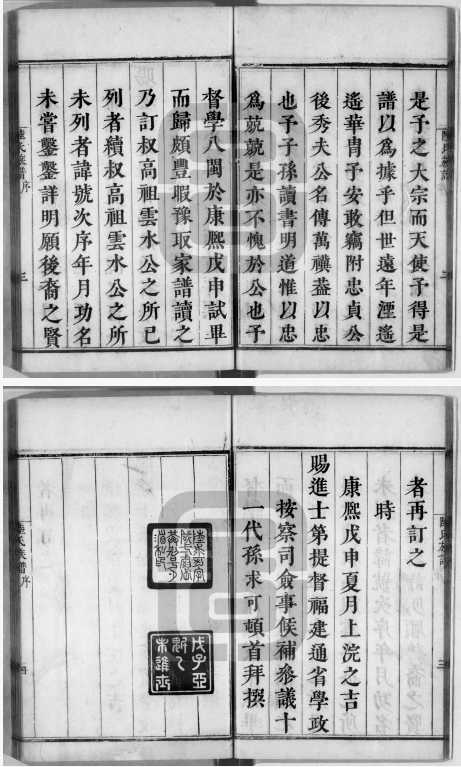 是子之大宗而天使予得是
譜以為據乎但世遠年湮遙
遙華胄予安敢竊附忠貞公
後秀夫公名傳萬禩葢以忠
也予子孫讀書明道惟以忠
為兢兢是亦不愧於公也予
督學八閩於康熙戊申試畢
而歸頗豐暇豫取家譜讀之
乃訂叔高祖雲水公之所已
列者續叔高祖雲水公之所
未列者諱號次序年月功名
未嘗鑿鑿詳明願後裔之賢
三
者再訂之
時
康熙戊申夏月上浣之吉
賜進士第提督福建通省學政
按察司僉事候補參議十
一代孫求可頓首拜撰
戊子亞
魁乙
未進士
族譜序
四